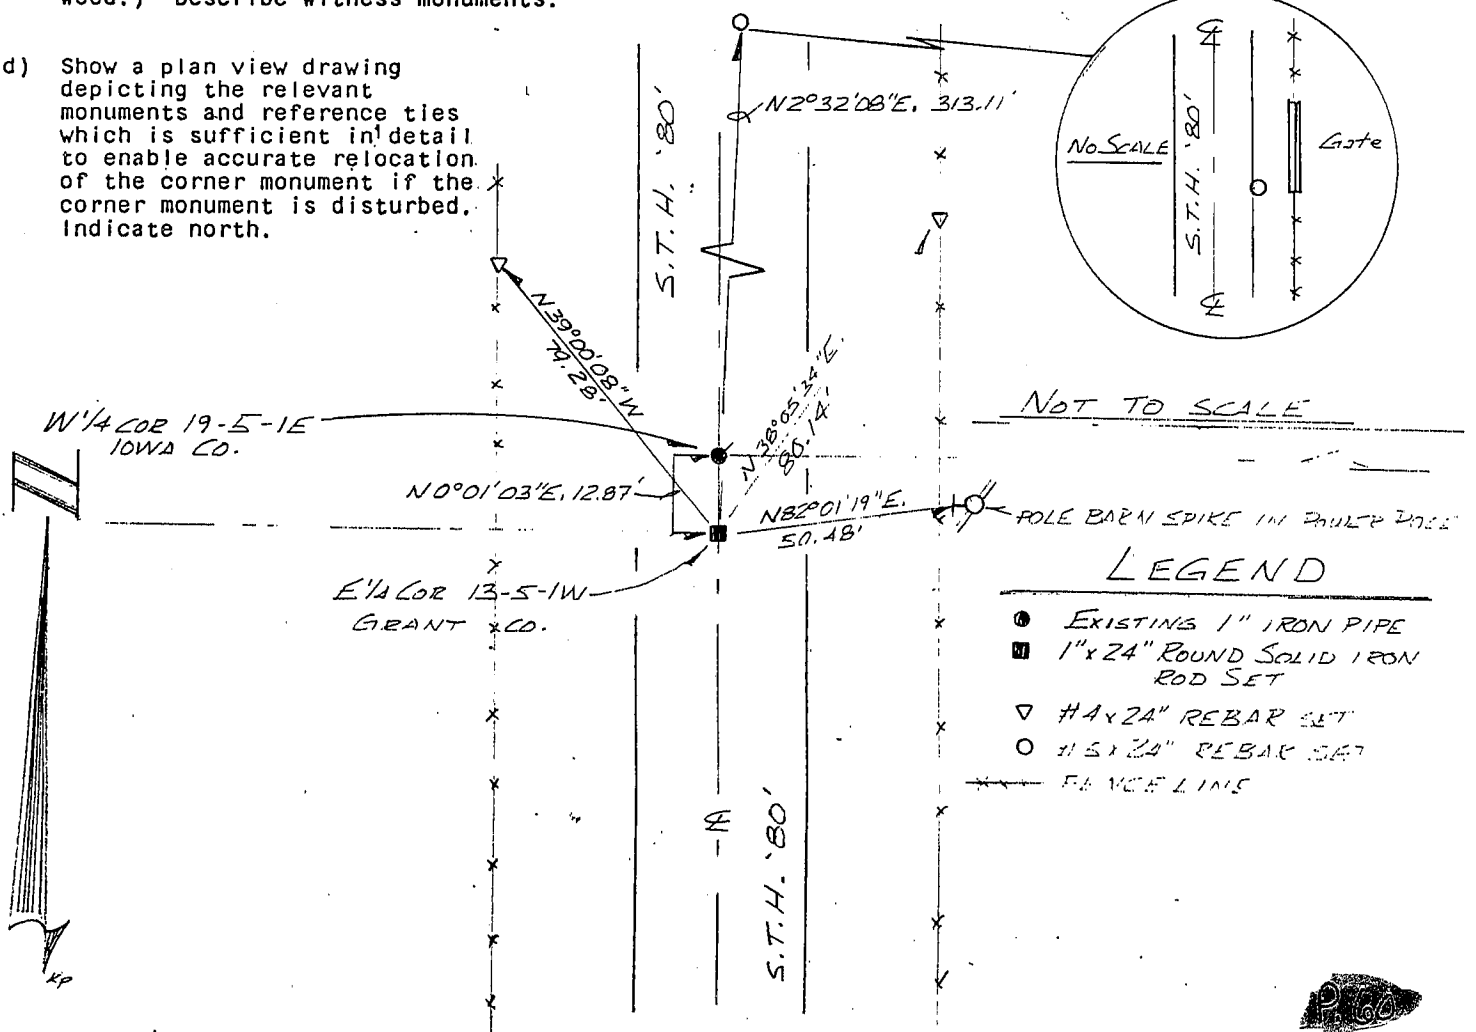 wood.) Describe witness monuments.
d) Show a plan view drawing
depicting the relevant
monuments and reference ties
which is sufficient in detail
to enable accurate relocation
of the corner monument if the
corner monument is disturbed.
Indicate north.
S.T.H. '80'
N2°32'08"E. 313.11'
No SCALE
S.T.H. '80'
Gate
N39°00'08"W
79.28'
N38°05'34"E.
80.14'
NOT TO SCALE
W 1/4 COR 19-5-1E
IOWA CO.
N0°01'03"E, 12.87'
N82°01'19"E.
50.48'
POLE BARN SPIKE IN POWER POLE
E 1/4 COR 13-5-1W
GRANT CO.
LEGEND
EXISTING 1" IRON PIPE
1"x24" ROUND SOLID IRON
ROD SET
#4x24" REBAR SET
#5x24" REBAR SET
FENCE LINE
S.T.H. '80'
N
KP
P. 60